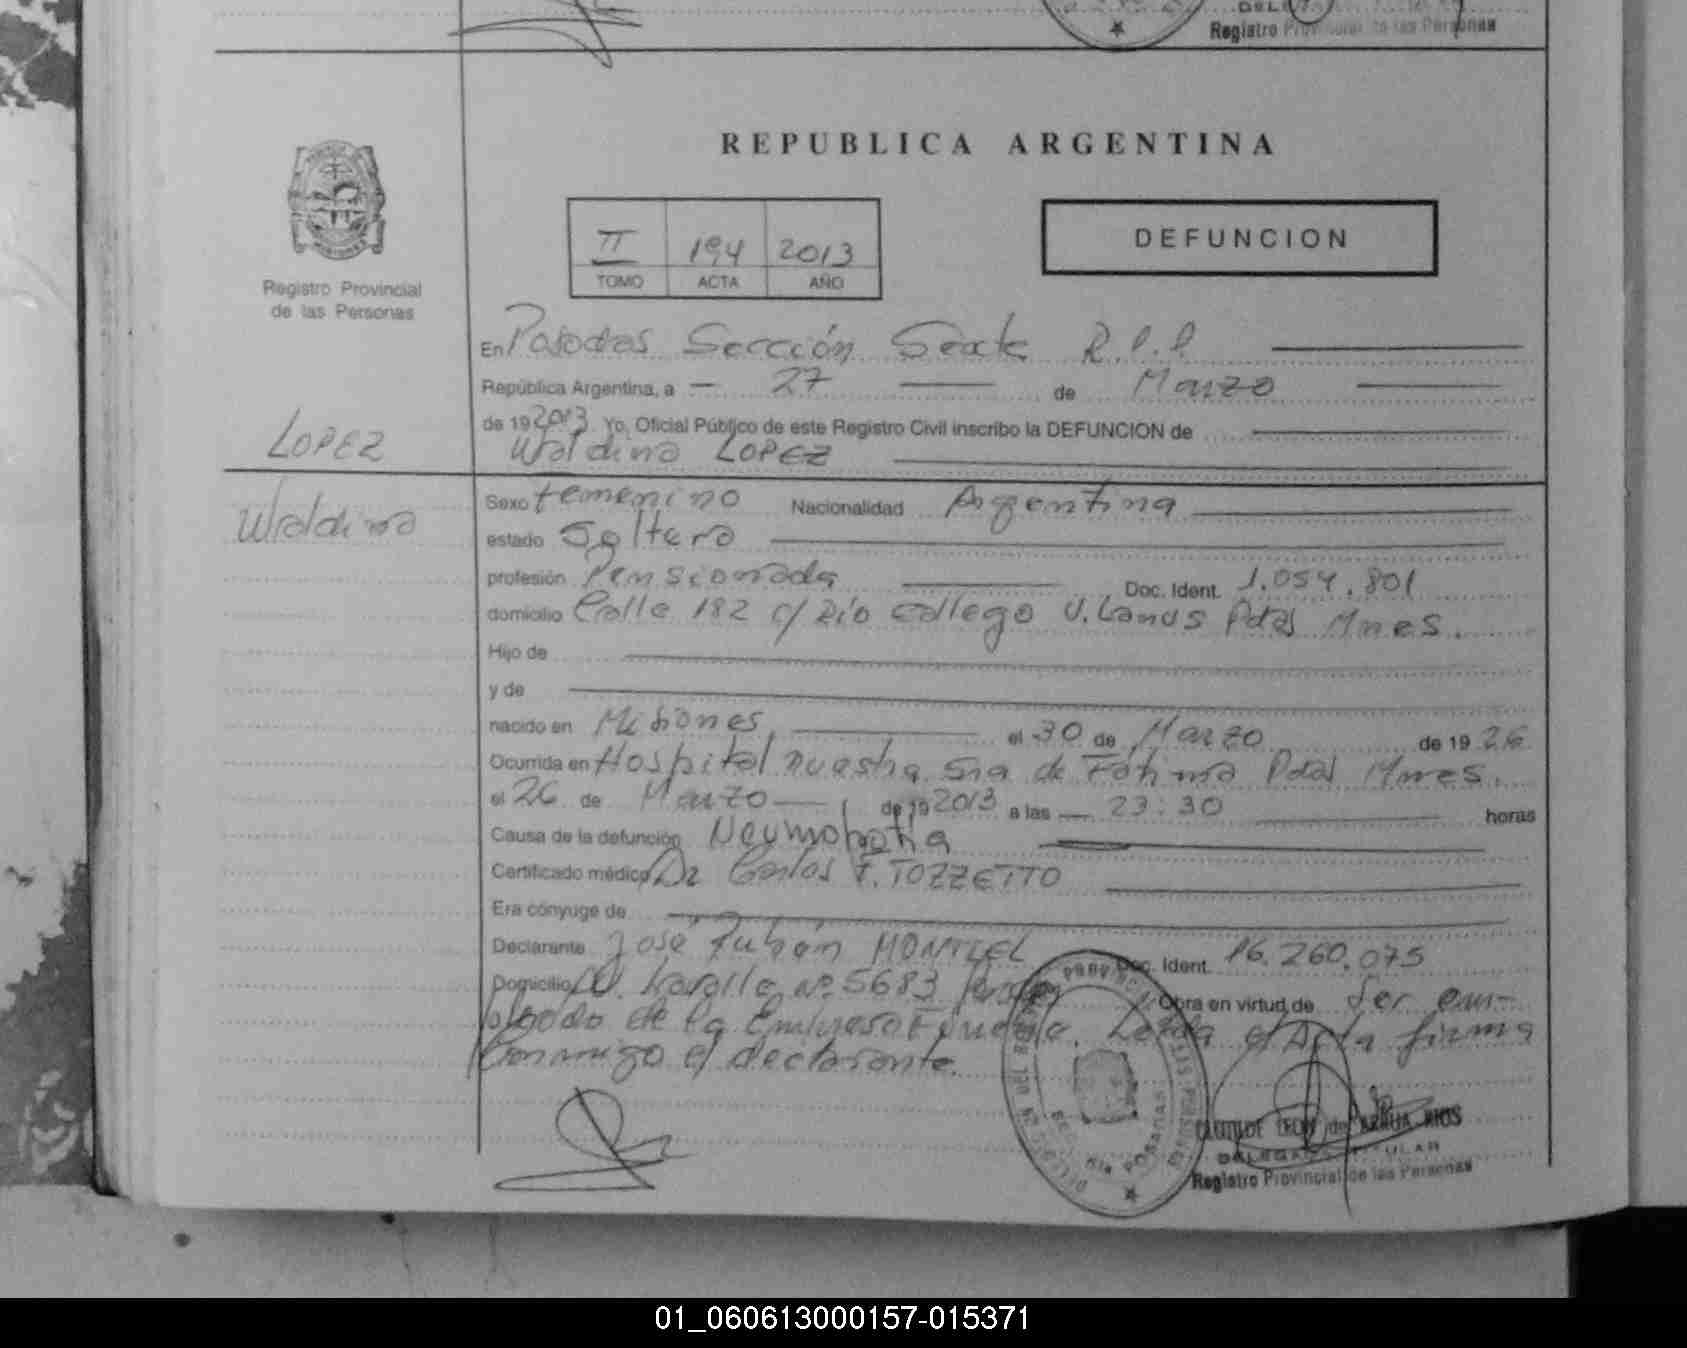 Registro Provincial de las Personas
REPUBLICA ARGENTINA
II 194 2013
TOMO ACTA AÑO
DEFUNCION
Registro Provincial
de las Personas
LOPEZ
Waldina
En Posadas Sección Sexta R.P.P.
República Argentina, a 27 de Marzo
de 19 2013 Yo, Oficial Público de este Registro Civil inscribo la DEFUNCION de
Waldina LOPEZ
Sexo femenino Nacionalidad Argentina
estado Soltera
profesión Pensionada Doc. Ident. 1.054.801
domicilio Calle 182 c/ Rio Gallego V. Lanus Pdas Mnes.
Hijo de
y de
nacido en Misiones el 30 de Marzo de 19 26
Ocurrida en Hospital Nuestra Sra de Fátima Pdas Mnes.
el 26 de Marzo de 19 2013 a las 23:30 horas
Causa de la defunción Neumopatia
Certificado médico Dr Carlos F. TOZZETTO
Era cónyuge de
Declarante José Rubén MONTIEL Doc. Ident. 16.260.075
Domicilio Nº 5683 Obra en virtud de Ser em-
pleado de la Empresa Fúnebre. Leída el Acta firma
Conmigo el declarante.
DELEGADA TITULAR
Registro Provincial de las Personas
01_060613000157-015371